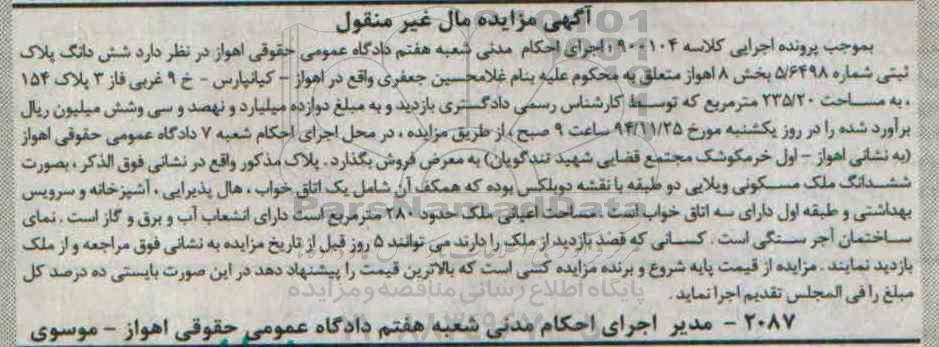 آگهی مزایده مال غیر منقول
بموجب پرونده اجرایی کلاسه ۹۰۰۱۰۴ اجرای احکام مدنی شعبه هفتم دادگاه عمومی حقوقی اهواز در نظر دارد شش دانگ پلاک
ثبتی شماره ۵/۶۴۹۸ بخش ۸ اهواز متعلق به محکوم علیه بنام غلامحسین جعفری واقع در اهواز - کیانپارس - خ ۹ غربی فاز ۳ پلاک ۱۵۴
، به مساحت ۲۳۵/۲۰ مترمربع که توسط کارشناس رسمی دادگستری بازدید و به مبلغ دوازده میلیارد و نهصد و سی وشش میلیون ریال
برآورد شده را در روز یکشنبه مورخ ۹۴/۱۱/۲۵ ساعت ۹ صبح ، از طریق مزایده ، در محل اجرای احکام شعبه ۷ دادگاه عمومی حقوقی اهواز
(به نشانی اهواز - اول خرمکوشک مجتمع قضایی شهید تندگویان) به معرض فروش بگذارد . پلاک مذکور واقع در نشانی فوق الذکر ، بصورت
ششدانگ ملک مسکونی ویلایی دو طبقه با نقشه دوبلکس بوده که همکف آن شامل یک اتاق خواب ، هال پذیرایی ، آشپزخانه و سرویس
بهداشتی و طبقه اول دارای سه اتاق خواب است . مساحت اعیانی ملک حدود ۲۸۰ مترمربع است دارای انشعاب آب و برق و گاز است . نمای
ساختمان آجر سنگی است . کسانی که قصد بازدید از ملک را دارند می توانند ۵ روز قبل از تاریخ مزایده به نشانی فوق مراجعه و از ملک
بازدید نمایند . مزایده از قیمت پایه شروع و برنده مزایده کسی است که بالاترین قیمت را پیشنهاد دهد در این صورت بایستی ده درصد کل
مبلغ را فی المجلس تقدیم اجرا نماید .
پایگاه اطلاع رسانی مناقصه و مزایده
ParsNamadData
۲۰۸۷ - مدیر اجرای احکام مدنی شعبه هفتم دادگاه عمومی حقوقی اهواز - موسوی